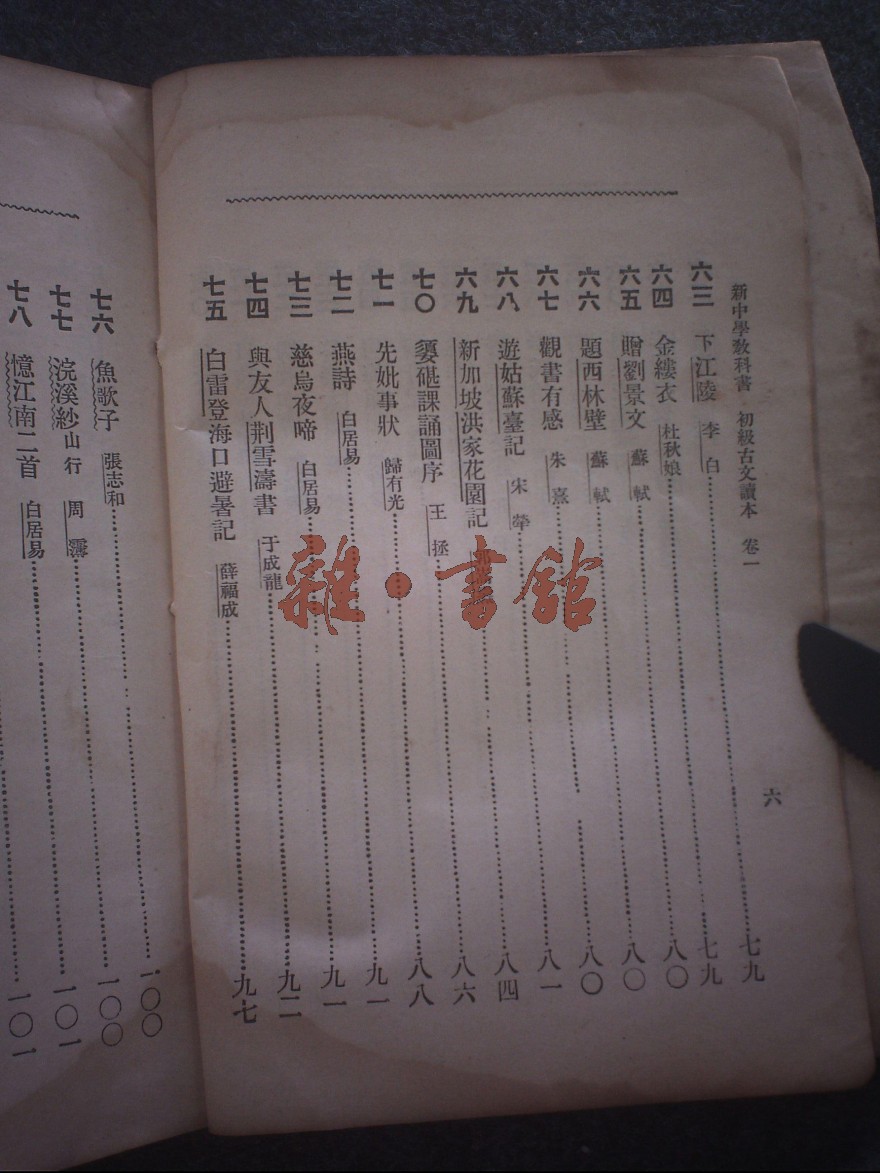 新中學教科書 初級古文讀本 卷一
六
六三 下江陵 李白 七九
六四 金縷衣 杜秋娘 七九
六五 贈劉景文 蘇軾 八〇
六六 題西林壁 蘇軾 八〇
六七 觀書有感 朱熹 八〇
六八 遊姑蘇臺記 宋犖 八一
六九 新加坡洪家花園記 八四
七〇 嬃碪課誦圖序 王拯 八六
七一 先妣事狀 歸有光 八八
七二 燕詩 白居易 九一
七三 慈烏夜啼 白居易 九一
七四 與友人荆雪濤書 于成龍 九二
七五 白雷登海口避暑記 薛福成 九七
七六 魚歌子 張志和 一〇〇
七七 浣溪紗山行 周 一〇〇
七八 憶江南二首 白居易 一〇一
一〇一
雜·書館